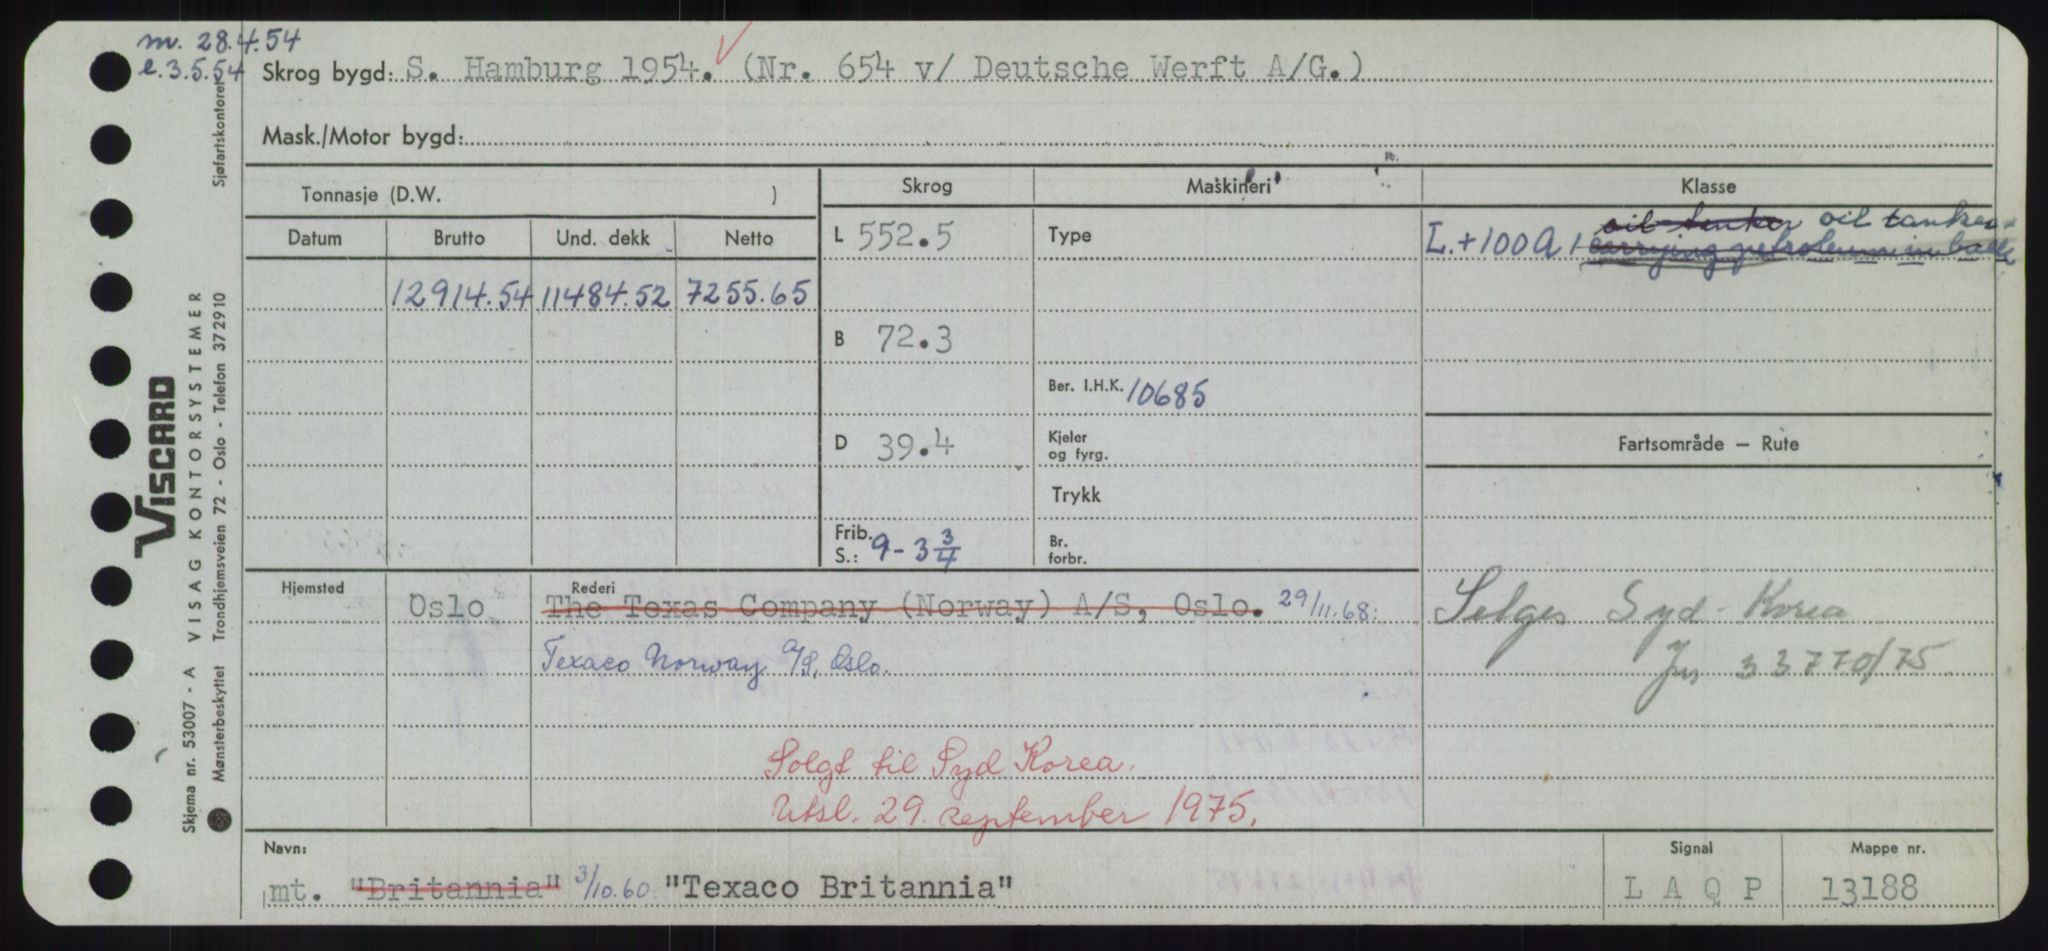 m. 28.4.54
e. 3.5.54
Skrog bygd: S. Hamburg 1954. (Nr. 654 v/ Deutsche Werft A/G.)
Mask./Motor bygd:
Tonnasje (D.W. )
Skrog
Maskineri
Klasse
Datum
Brutto
Und. dekk
Netto
L 552.5
Type
oil tanker oil tanker
L. + 100 A 1 carrying petroleum in bulk
12914.54 11484.52 7255.65
B 72.3
Ber. I.H.K. 10685
D 39.4
Kjeler
og fyrg.
Fartsområde — Rute
Trykk
Frib.
S.: 9 - 3 3/4
Br.
forbr.
Hjemsted
Oslo
Rederi
The Texas Company (Norway) A/S, Oslo. 29/11.68:
Texaco Norway A/S, Oslo.
Selges Syd-Korea
Jnr 33770/75
Solgt til Syd Korea.
Utsl. 29. september 1975.
Navn:
mt. "Britannia" 3/10.60. "Texaco Britannia"
Signal
L A Q P
Mappe nr.
13188
VISCARD
Skjema nr. 53007 - A VISAG KONTORSYSTEMER
Mønsterbeskyttet Trondhjemsveien 72 - Oslo - Telefon 372910
Sjøfartskontoret